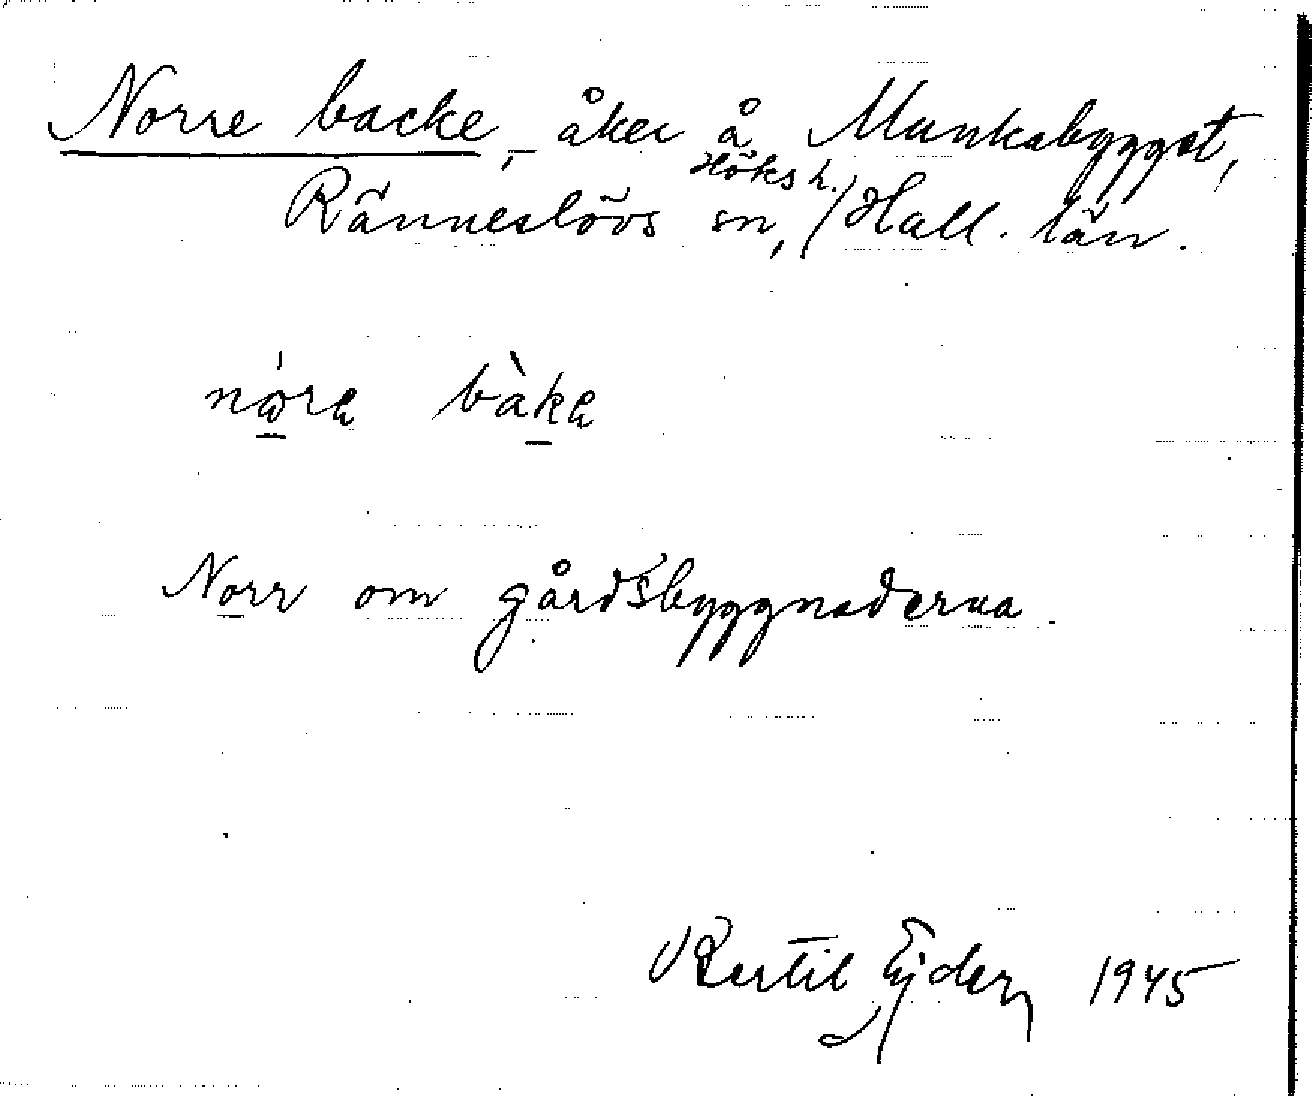 Norre backe, åker å Munkabygget,
Ränneslövs sn, Höks h./Hall. län.
nóra bàka
Norr om gårdsbyggnaderna.
Bertil Ejder, 1945